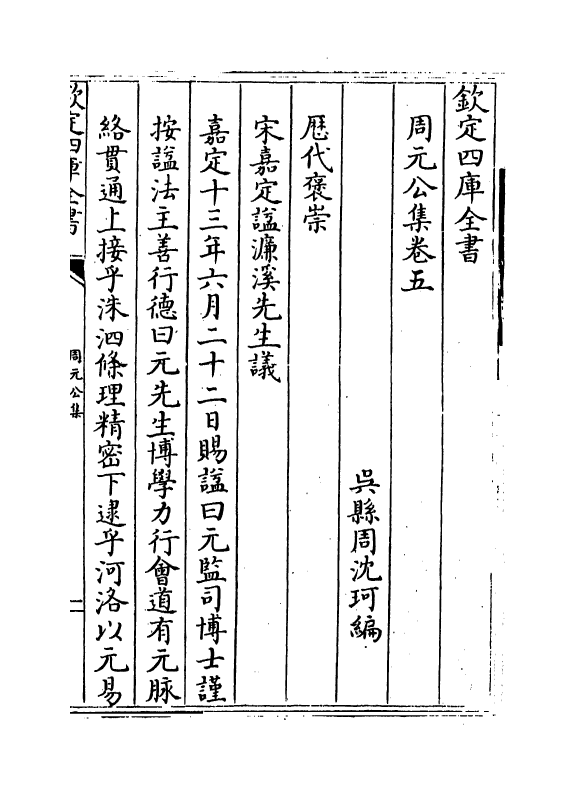 欽定四庫全書
周元公集卷五
吳縣周沈珂編
歴代褒崇
宋嘉定諡濂溪先生議
嘉定十三年六月二十二日賜諡曰元監司博士謹
按諡法主善行德曰元先生博學力行會道有元脈
絡貫通上接乎洙泗條理精密下逮乎河洛以元易
欽定四庫全書
周元公集
一